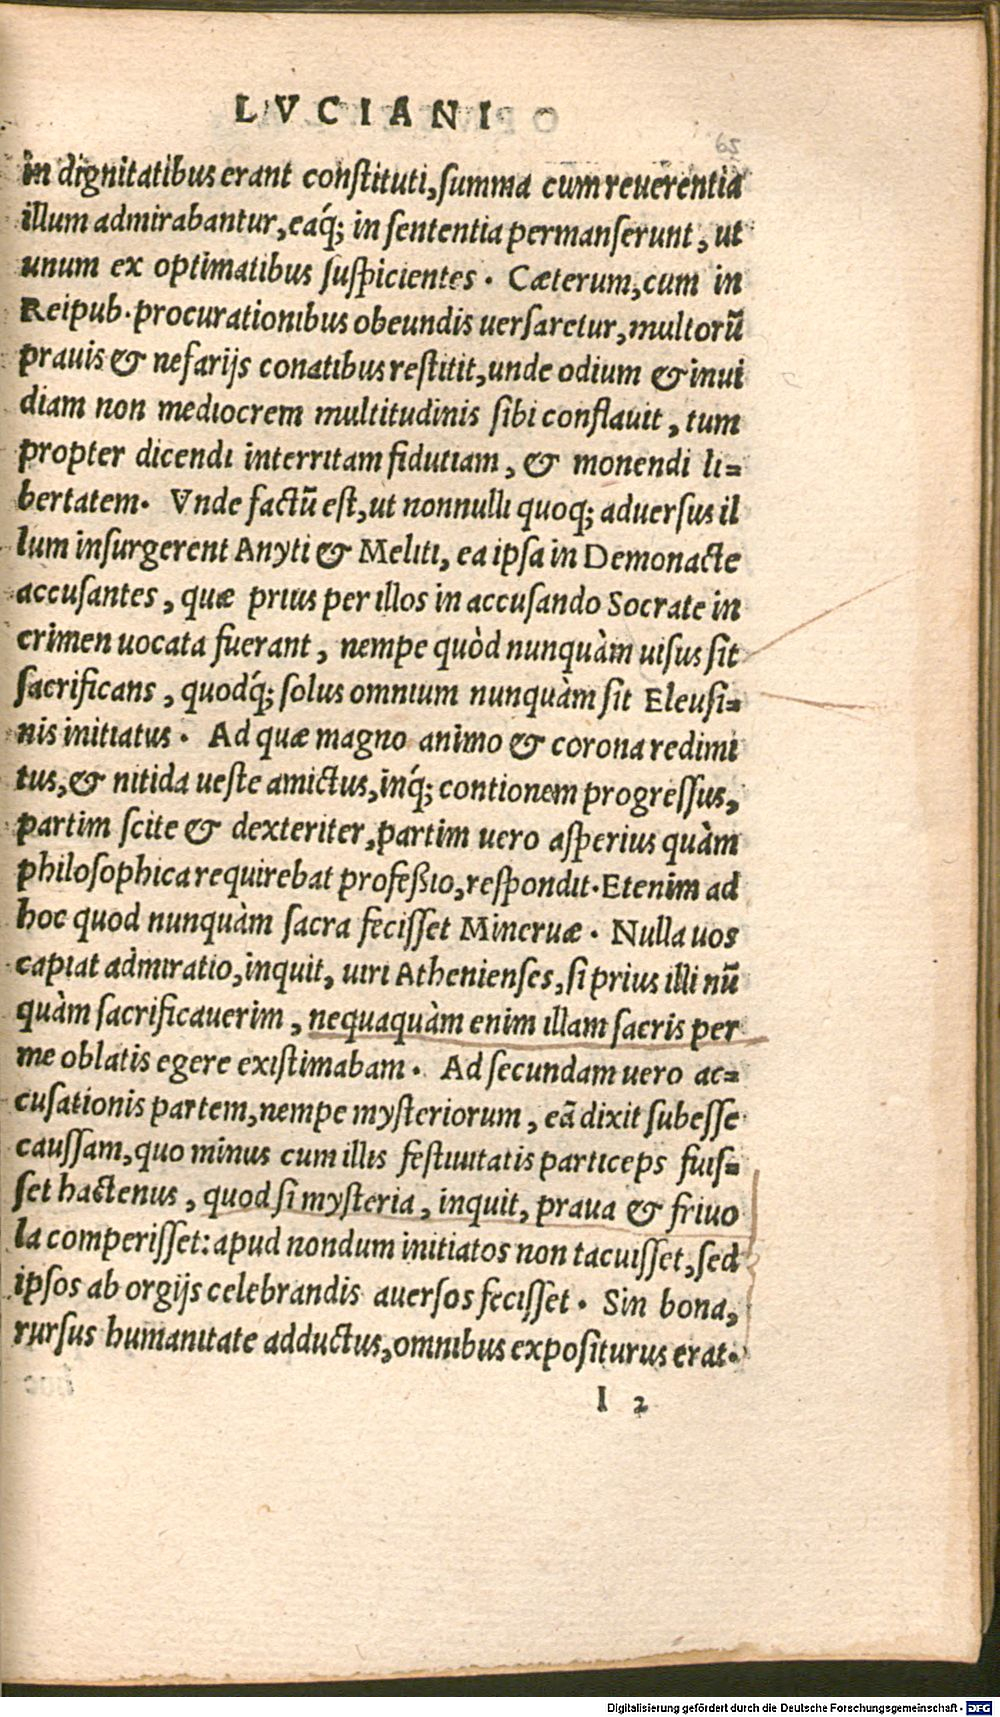 LVCIANI
in dignitatibus erant constituti, summa cum reuerentia
illum admirabantur, eaq́; in sententia permanserunt, ut
unum ex optimatibus suspicientes. Cæterum, cum in
Reipub. procurationibus obeundis uersaretur, multorũ
prauis & nefarijs conatibus restitit, unde odium & inui
diam non mediocrem multitudinis sibi conflauit, tum
propter dicendi interritam fidutiam, & monendi li=
bertatem. Vnde factũ est, ut nonnulli quoq; aduersus il
lum insurgerent Anyti & Meliti, ea ipsa in Demonacte
accusantes, quæ prius per illos in accusando Socrate in
crimen uocata fuerant, nempe quòd nunquàm uisus sit
sacrificans, quodq́; solus omnium nunquàm sit Eleusi=
nis initiatus. Ad quæ magno animo & corona redimi
tus, & nitida ueste amictus, inq́; contionem progressus,
partim scite & dexteriter, partim uero asperius quàm
philosophica requirebat profeßio, respondit. Etenim ad
hoc quod nunquàm sacra fecisset Mineruæ. Nulla uos
capiat admiratio, inquit, uiri Athenienses, si prius illi nũ
quàm sacrificauerim, nequaquàm enim illam sacris per
me oblatis egere existimabam. Ad secundam uero ac=
cusationis partem, nempe mysteriorum, eã dixit subesse
caussam, quo minus cum illis festiuitatis particeps fuis=
set hactenus, quod si mysteria, inquit, praua & friuo
la comperisset: apud nondum initiatos non tacuisset, sed
ipsos ab orgijs celebrandis auersos fecisset. Sin bona,
rursus humanitate adductus, omnibus expositurus erat.
I 2
Digitalisierung gefördert durch die Deutsche Forschungsgemeinschaft - DFG